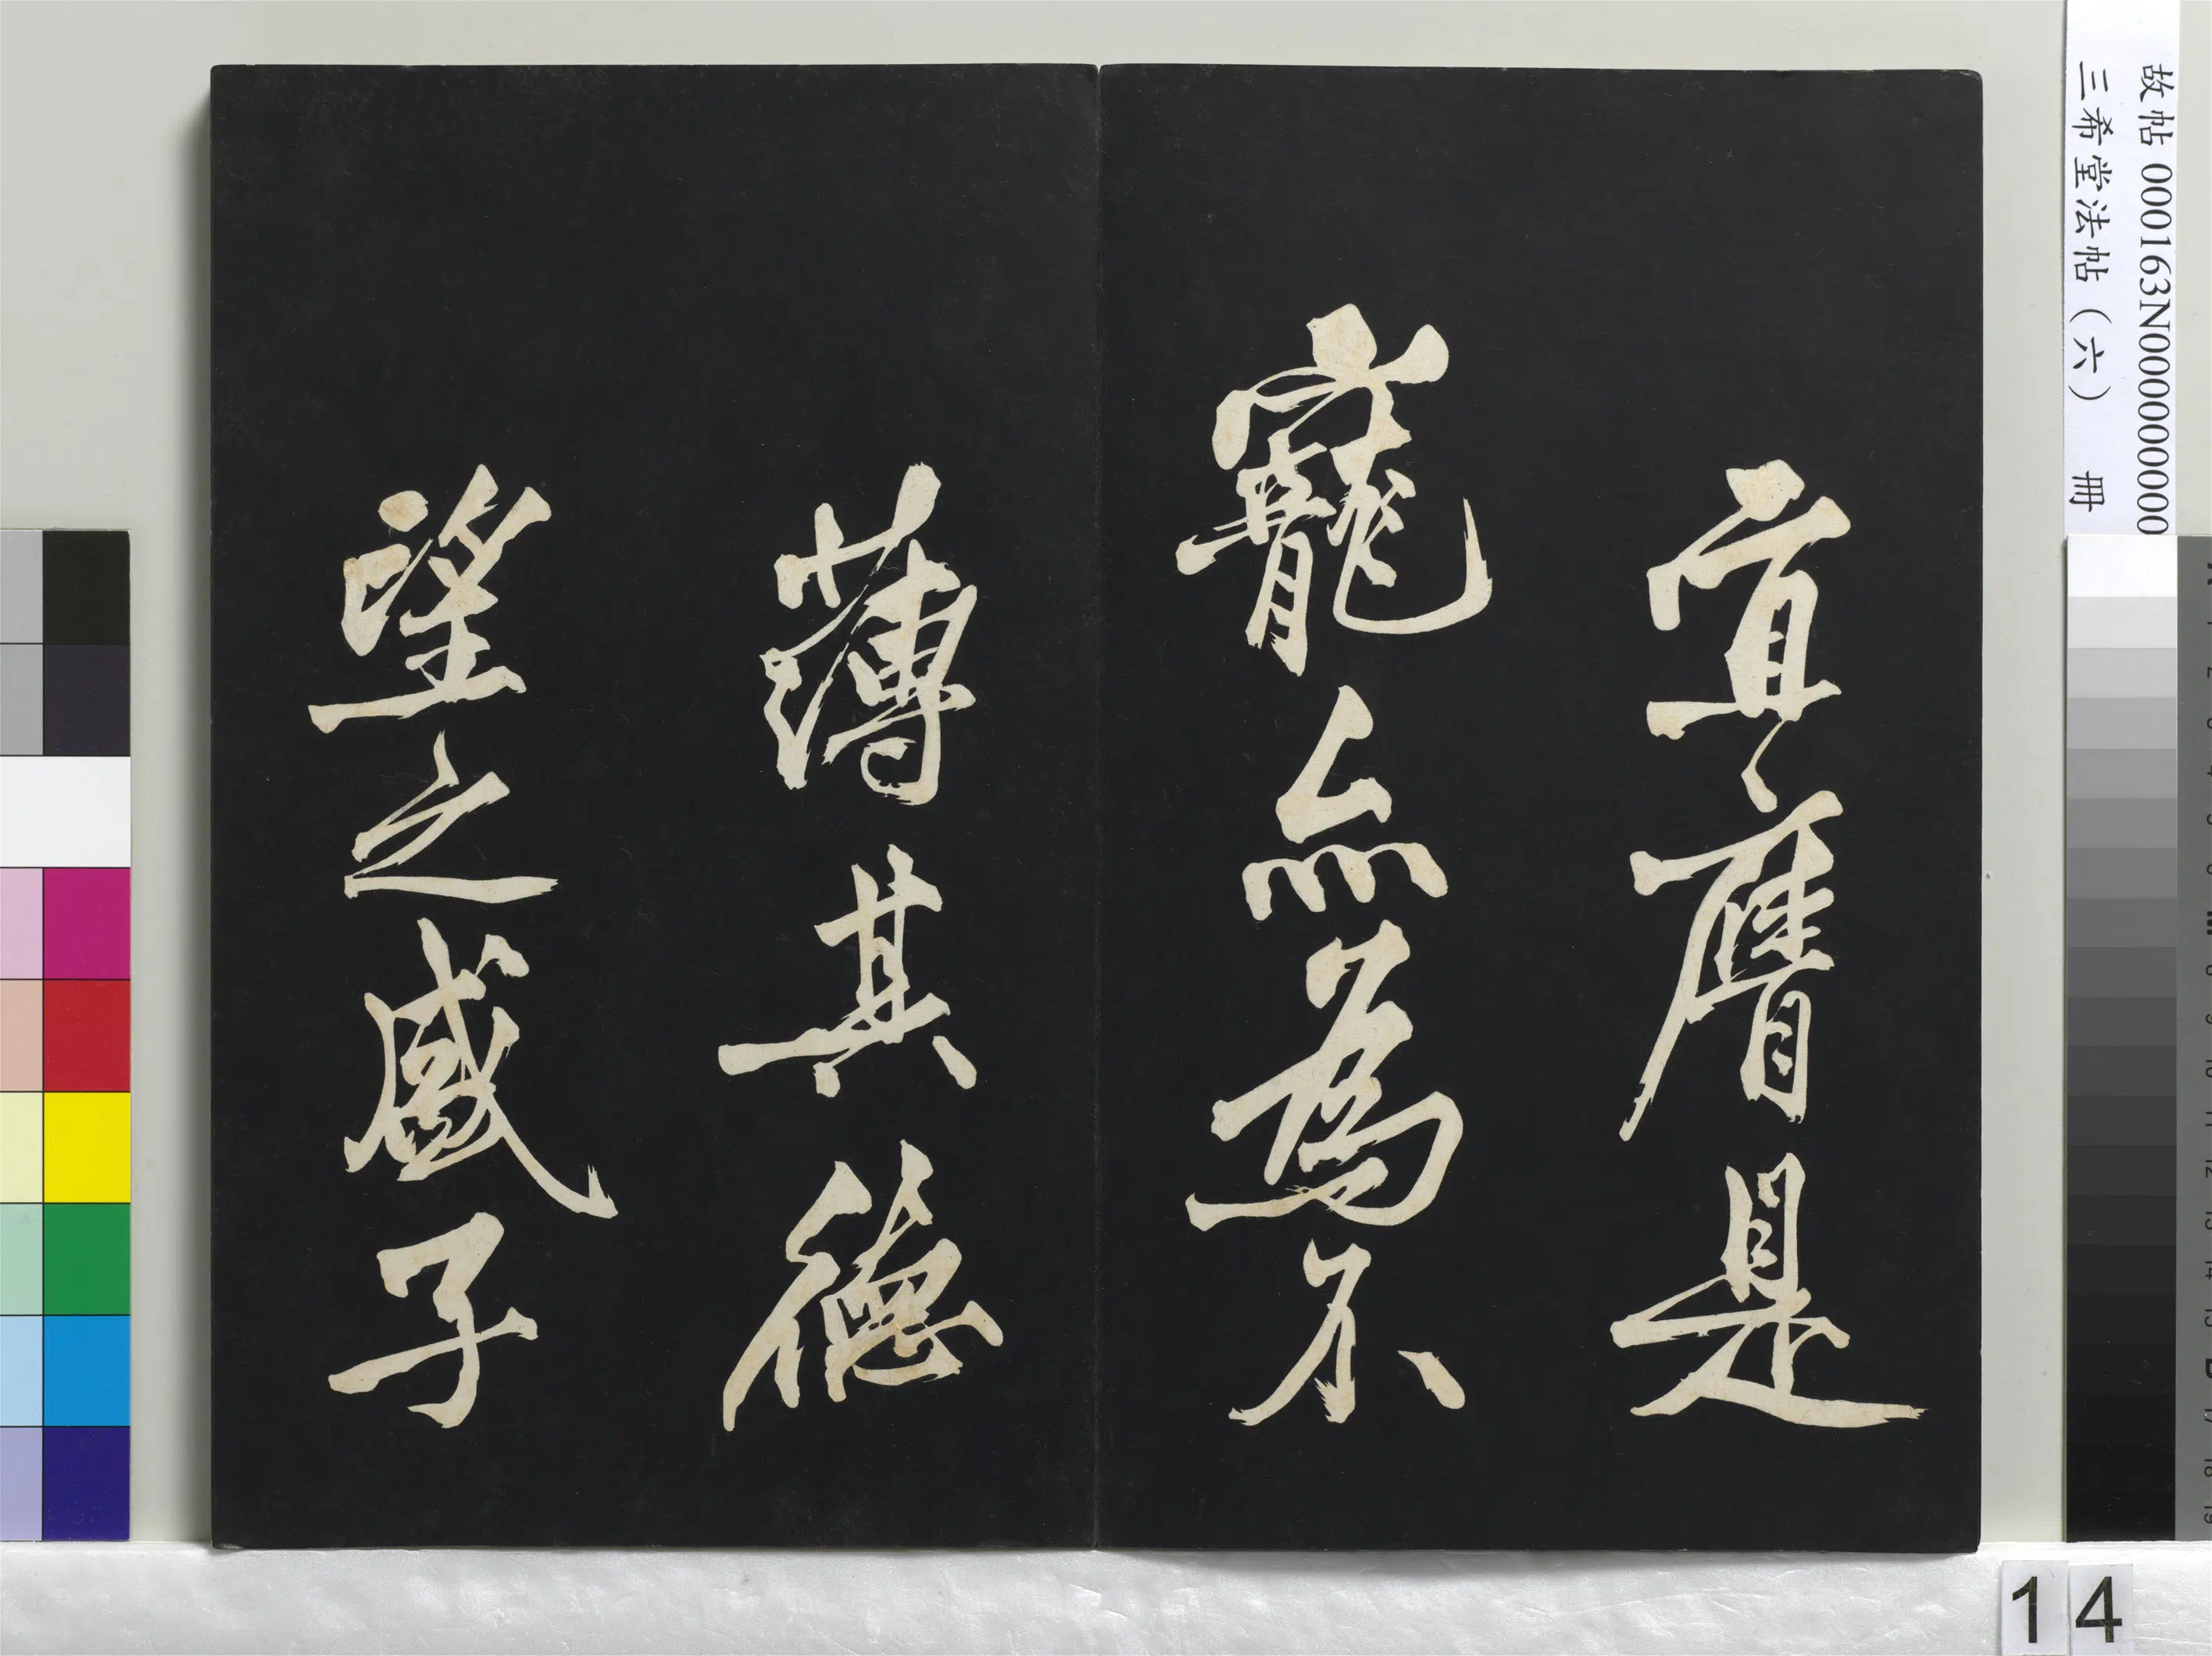 宜膺是
寵亦為不
薄其德
望之盛予
故帖 000163N000000000
三希堂法帖（六） 冊
14